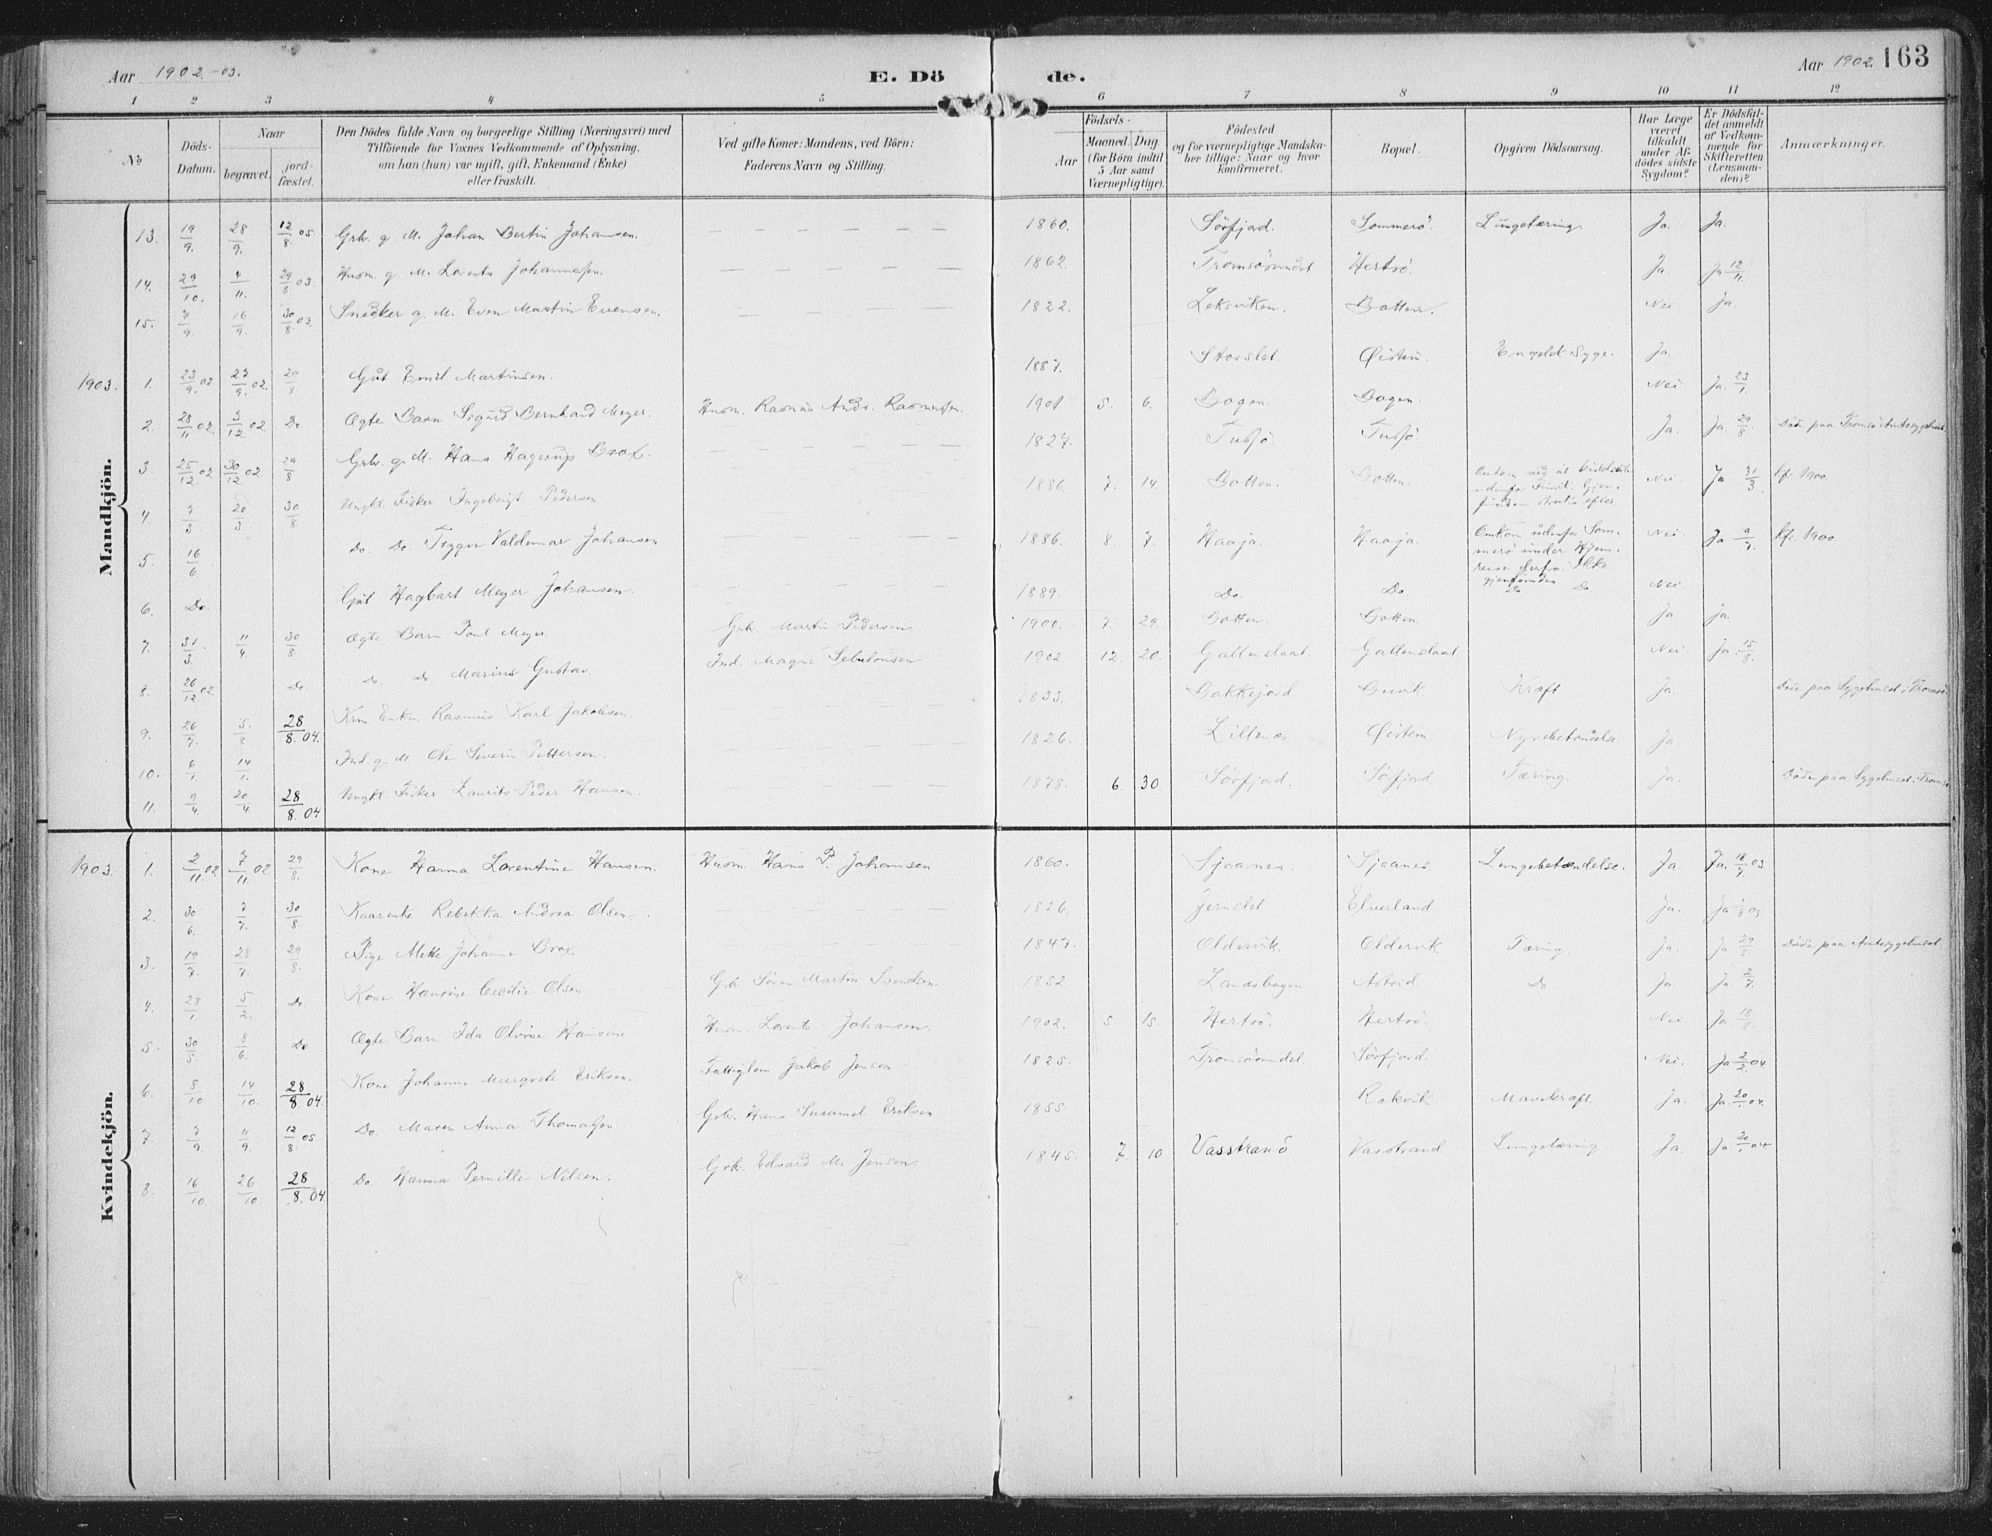 Aar 1902.-03. E. Dö de. Aar 1902. 163
1 2 3 4 5 6 7 8 9 10 11 12
No
Döds-Datum.
Naar
begravet.
jord-fæstet.
Den Dödes fulde Navn og borgerlige Stilling (Næringsvei) med
Tilföiende for Voxnes Vedkommende af Oplysning,
om han (hun) var ugift, gift, Enkemand (Enke)
eller fraskilt.
Ved gifte Koner: Mandens, ved Börn:
Faderens Navn og Stilling.
Födsels-
Aar
Maaned. Dag.
(for Börn indtil
5 Aar samt
Værnepligtige).
Födested
og for værnepligtige Mandska-
ber tillige: Naar og hvor
konfirmeret.
Bopæl.
Opgiven Dödsaarsag.
Har Læge
været
tilkaldt
under Af-
dödes sidste
Sygdom?
Er Dödsfal-
det anmeldt
af Vedkom-
mende for
Skifteretten
(Lensman-
den)?
Anmærkninger.
Mandkjön.
13. 19/9. 28/9. 12/8 05 Grb. g. M. Johan Bertin Johansen. 1860. Sörfjord. Sommerö. Lungetæring. Ja. Ja.
14. 29/10. 4/11. 29/8 03. Husm. g. M. Lorents Johannessen. 1862. Tromsösundet Hertsö. Ja. Ja 12/11.
15. 7/9. 16/9. 30/8 03. Snedker g. M. Even Martin Evensen. 1822. Leksviken. Botten. Nei Ja.
1903. 1. 23/9 02 27/9 02. 29/8 Gut Emil Martinsen. 1887. Storslet Øisten. Engelsk Syge. Ja.
2. 28/11 02. 3/12 02 Do. Ægte Barn Sigurd Bernhard Meyer. Husm. Rasmus Andr. Rasmussen. 1901 5. 6. Bogen. Bogen. Nei Ja. 23/1.
3. 25/12 02 30/12 02. 29/8 Grb. g. M. Hans Hagerup Brox. 1827. Tussö. Tussö Ja. Ja 29/8. Döde paa Tromsö Amtssygehus
4. 7/3. 20/3. 30/8 Ungk. Fisker Ingebrigt Pedersen 1886. 7. 14. Botten. Botten. Omkom Nei. Ja 31/3. kfr. 1900.
5. 16/6. Do. Do. Trygve Valdemar Johansen 1886. 8. 7. Haaja. Haaja. Omkom udenfor Som-
merö under Hjem-
reise derfra. Ikke
gjenfunden. Nei. Ja 9/7. kfr. 1900
6. Do. Gut Hagbart Meyer Johansen. 1889. Do. Do Do Do Nei
7. 31/3. 11/4. 30/8. Ægte Barn Paul Meyer. Grb. Martin Pedersen 1900. 7. 29 Botten. Botten. Ja Ja.
8. 26/12 02. Do Do. Do Marius Gustav. Ind. Magne 1902 12. 20. Gallenslaat Gallenslaat Nei. Ja. 15/8.
9. 26/7. 5/8 28/8. 04. Enkm. Rasmus Karl Jakobsen 1833. Bakkejord Kræft Ja. Döde paa Sygehuset i Tromsö.
10. 6/1. 14/1. Ind. g. M Ole Severin Pettersen. 1826. Lillenæs Øisten Nyrebetændelse. Ja
11. 9/4. 20/4. 28/8. 04 Ungk. Fisker Laurits Peder Hansen. 1878. 6. 30. Sörfjord. Sörfjord Tæring. Ja. Döde paa Sygehuset i Tromsö.
Kvindekjön.
1903. 1. 2/11. 02 7/11. 02 29/8. Kone Hanna Lorentine Hansen. Husm. Hans P. Johansen 1860. Sjeanes. Sjeanes. Lungebetændelse. Ja. Ja. 18/7 03.
2. 30/6. 7/7. 30/8 Kaarente Rebekka Andrea Olsen. 1826. Jernslet Elverland Ja. Ja 1/8 03.
3. 19/7. 28/7. 29/8. Pige Mette Johanna Brox 1847. Oldervik. Oldervik. Tæring. Ja. Ja 29/8. Döde paa Amtssygehuset
4. 28/1 5/2. Do. Kone Hansine Cecilie Olsen Grb. Sören Martin Svendsen. 1852 Landsbogen Astrid Do. Ja Ja. 2/7.
5. 30/5. 8/6. Do Ægte Barn Ida Olvine Hansine Husm. Lorents Johansen. 1902. 5. 15. Hertsö. Hertsö. Nei Ja 18/8.
6. 8/10 14/10. 28/8 04. Kone Johanne Margrete Eriksen. Fattiglem Jakob Jensen 1825. Tromsösundet. Sörfjord. Nei. Ja 2/2 04
7. 2/9 11/9. 12/8 05 Do. Maren Anna Thomassen. Grb. Hans Susamel Eriksen 1855. Rækvik. Mavekræft. Ja. Ja 20/1 04.
8. 16/10. 26/10 28/8. 04 Do. Hanna Pernille Nilsen. Grb. Edvard M. Jensen. 1845. 7 10 Vasstrand Vasstrand Lungetæring Ja. Ja 20/1 04